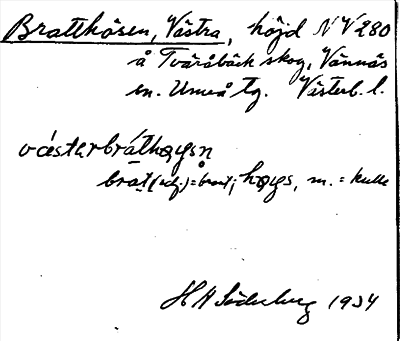 Bratthösen, Västra, höjd N V 280
å Tväråbäck skog, Vännäs
sn. Umeå tg. Västerb. l.
brat (adj.) = brant; høgs, m. = kulle
H A Söderberg 1934